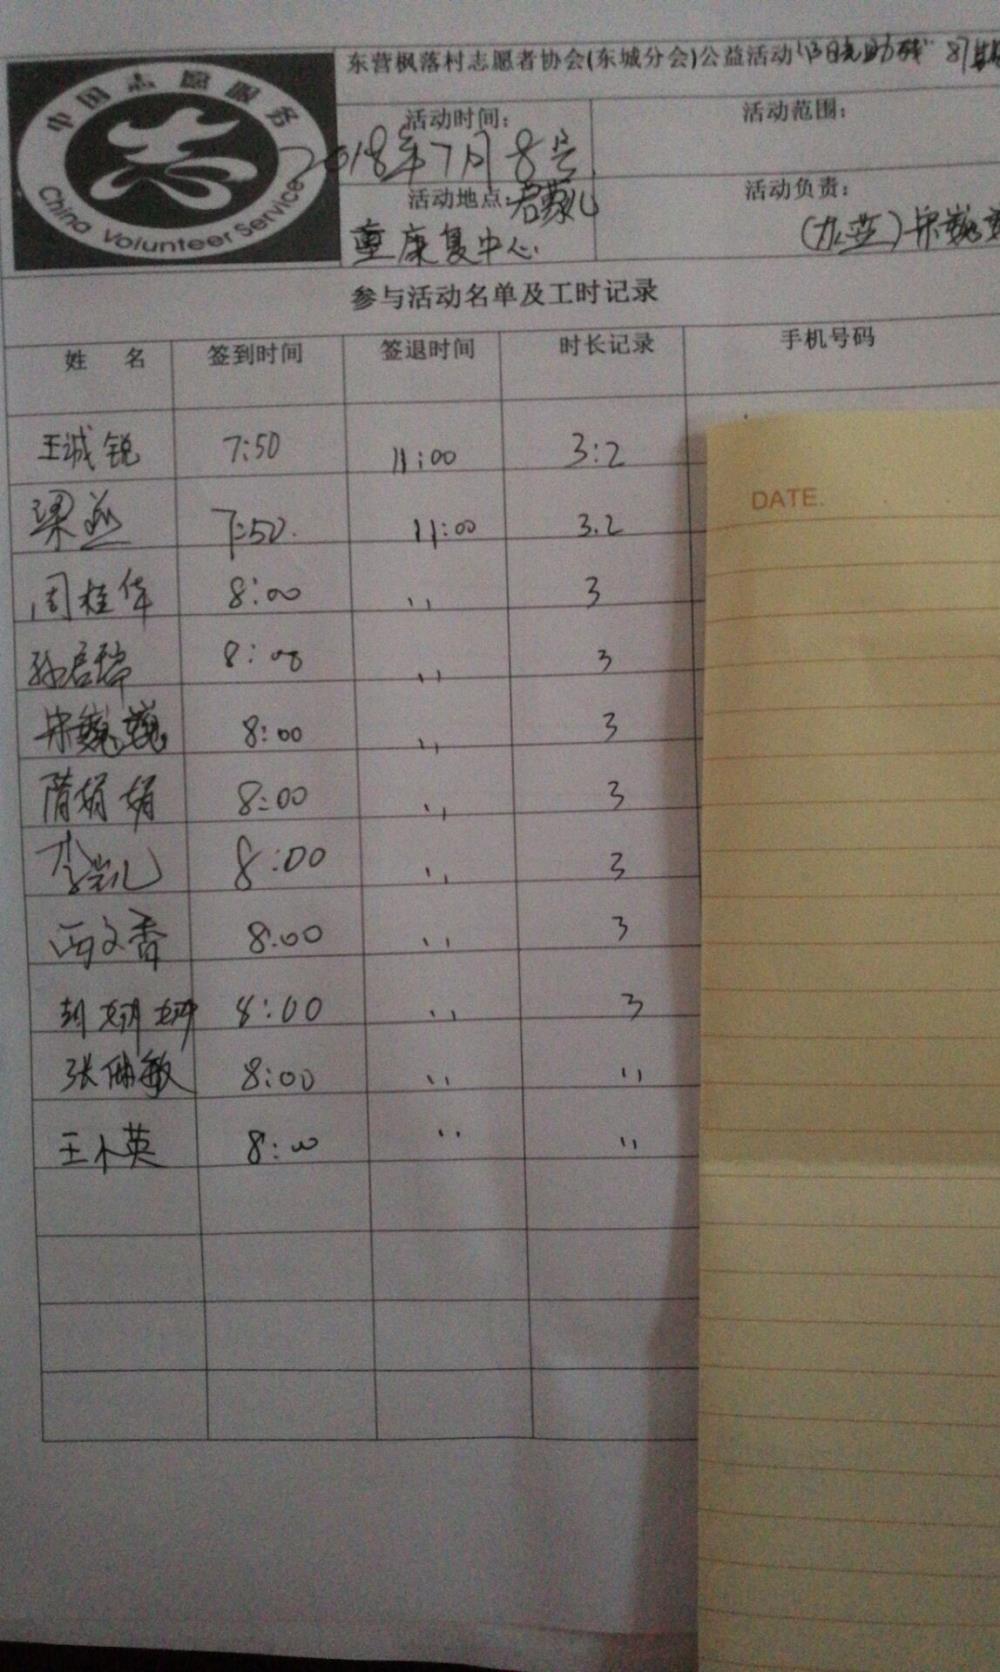 中国志愿服务
China Volunteer Service
东营枫落村志愿者协会(东城分会)公益活动 助残 87期
活动时间:
活动范围:
2018年7月8号
活动地点:启蒙儿
活动负责:
童康复中心.
宋巍巍
参与活动名单及工时记录
姓 名 签到时间 签退时间 时长记录 手机号码
王诚锐 7:50 11:00 3:2
DATE.
梁燕 7:50. 11:00 3.2
周桂华 8:00 '' 3
孙启瑞 8:00 '' 3
宋巍巍 8:00 '' 3
隋娟娟 8:00 '' 3
李凯 8:00 '' 3
文香 8:00 '' 3
彭妍妍 8:00 '' 3
张佩敏 8:00 '' ''
王小英 8:00 '' ''